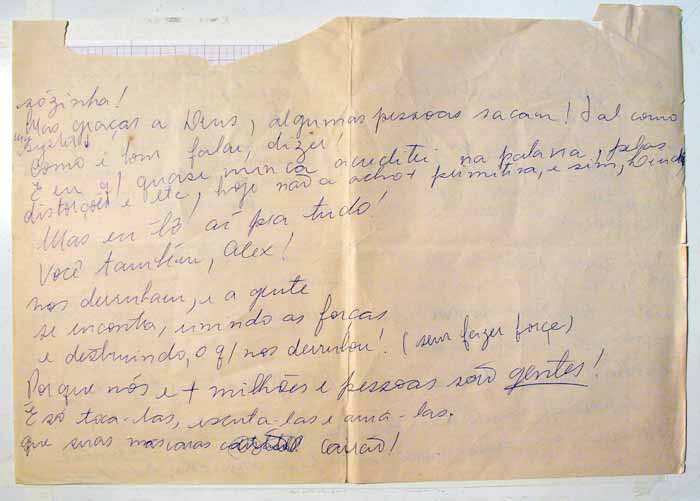 sózinha!
Mas graças a Deus, algumas pessoas sacam! Tal como
Como é bom falar, dizer!
E eu q/ quase nunca acreditei na palavra, pelas
distorções e etc, hoje não a acho + primitiva, e sim, linda
Mas eu tô aí pra tudo!
Você também, Alex!
nos derrubam, e a gente
se encontra, unindo as forças
e destruindo, o q/ nos derrubou! (sem fazer força)
Porque nós e + milhões e pessoas são gentes!
É só toca-las, escuta-las e ama-las.
que suas mascaras cairão!